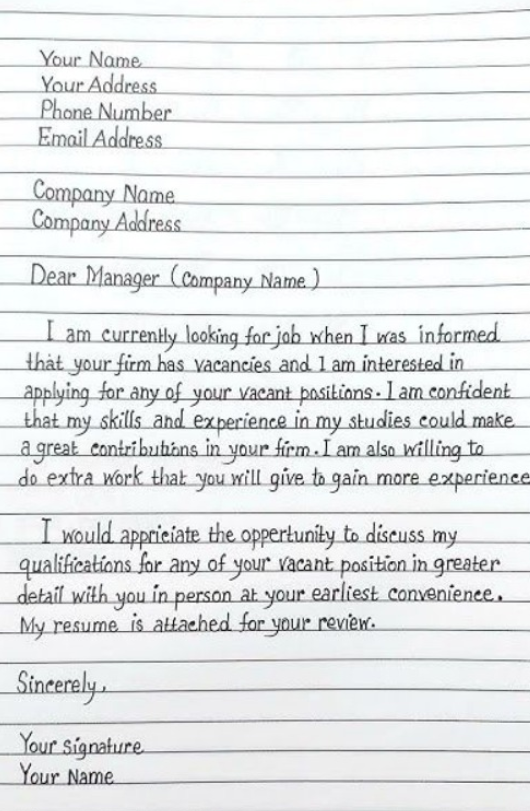 Your Name
Your Address
Phone Number
Email Address
Company Name
Company Address
Dear Manager (Company Name)
I am currently looking for job when I was informed
that your firm has vacancies and I am interested in
applying for any of your vacant positions. I am confident
that my skills and experience in my studies could make
a great contributions in your firm. I am also willing to
do extra work that you will give to gain more experience
I would appriciate the oppertunity to discuss my
qualifications for any of your vacant position in greater
detail with you in person at your earliest convenience.
My resume is attached for your review.
Sincerely,
Your signature
Your Name